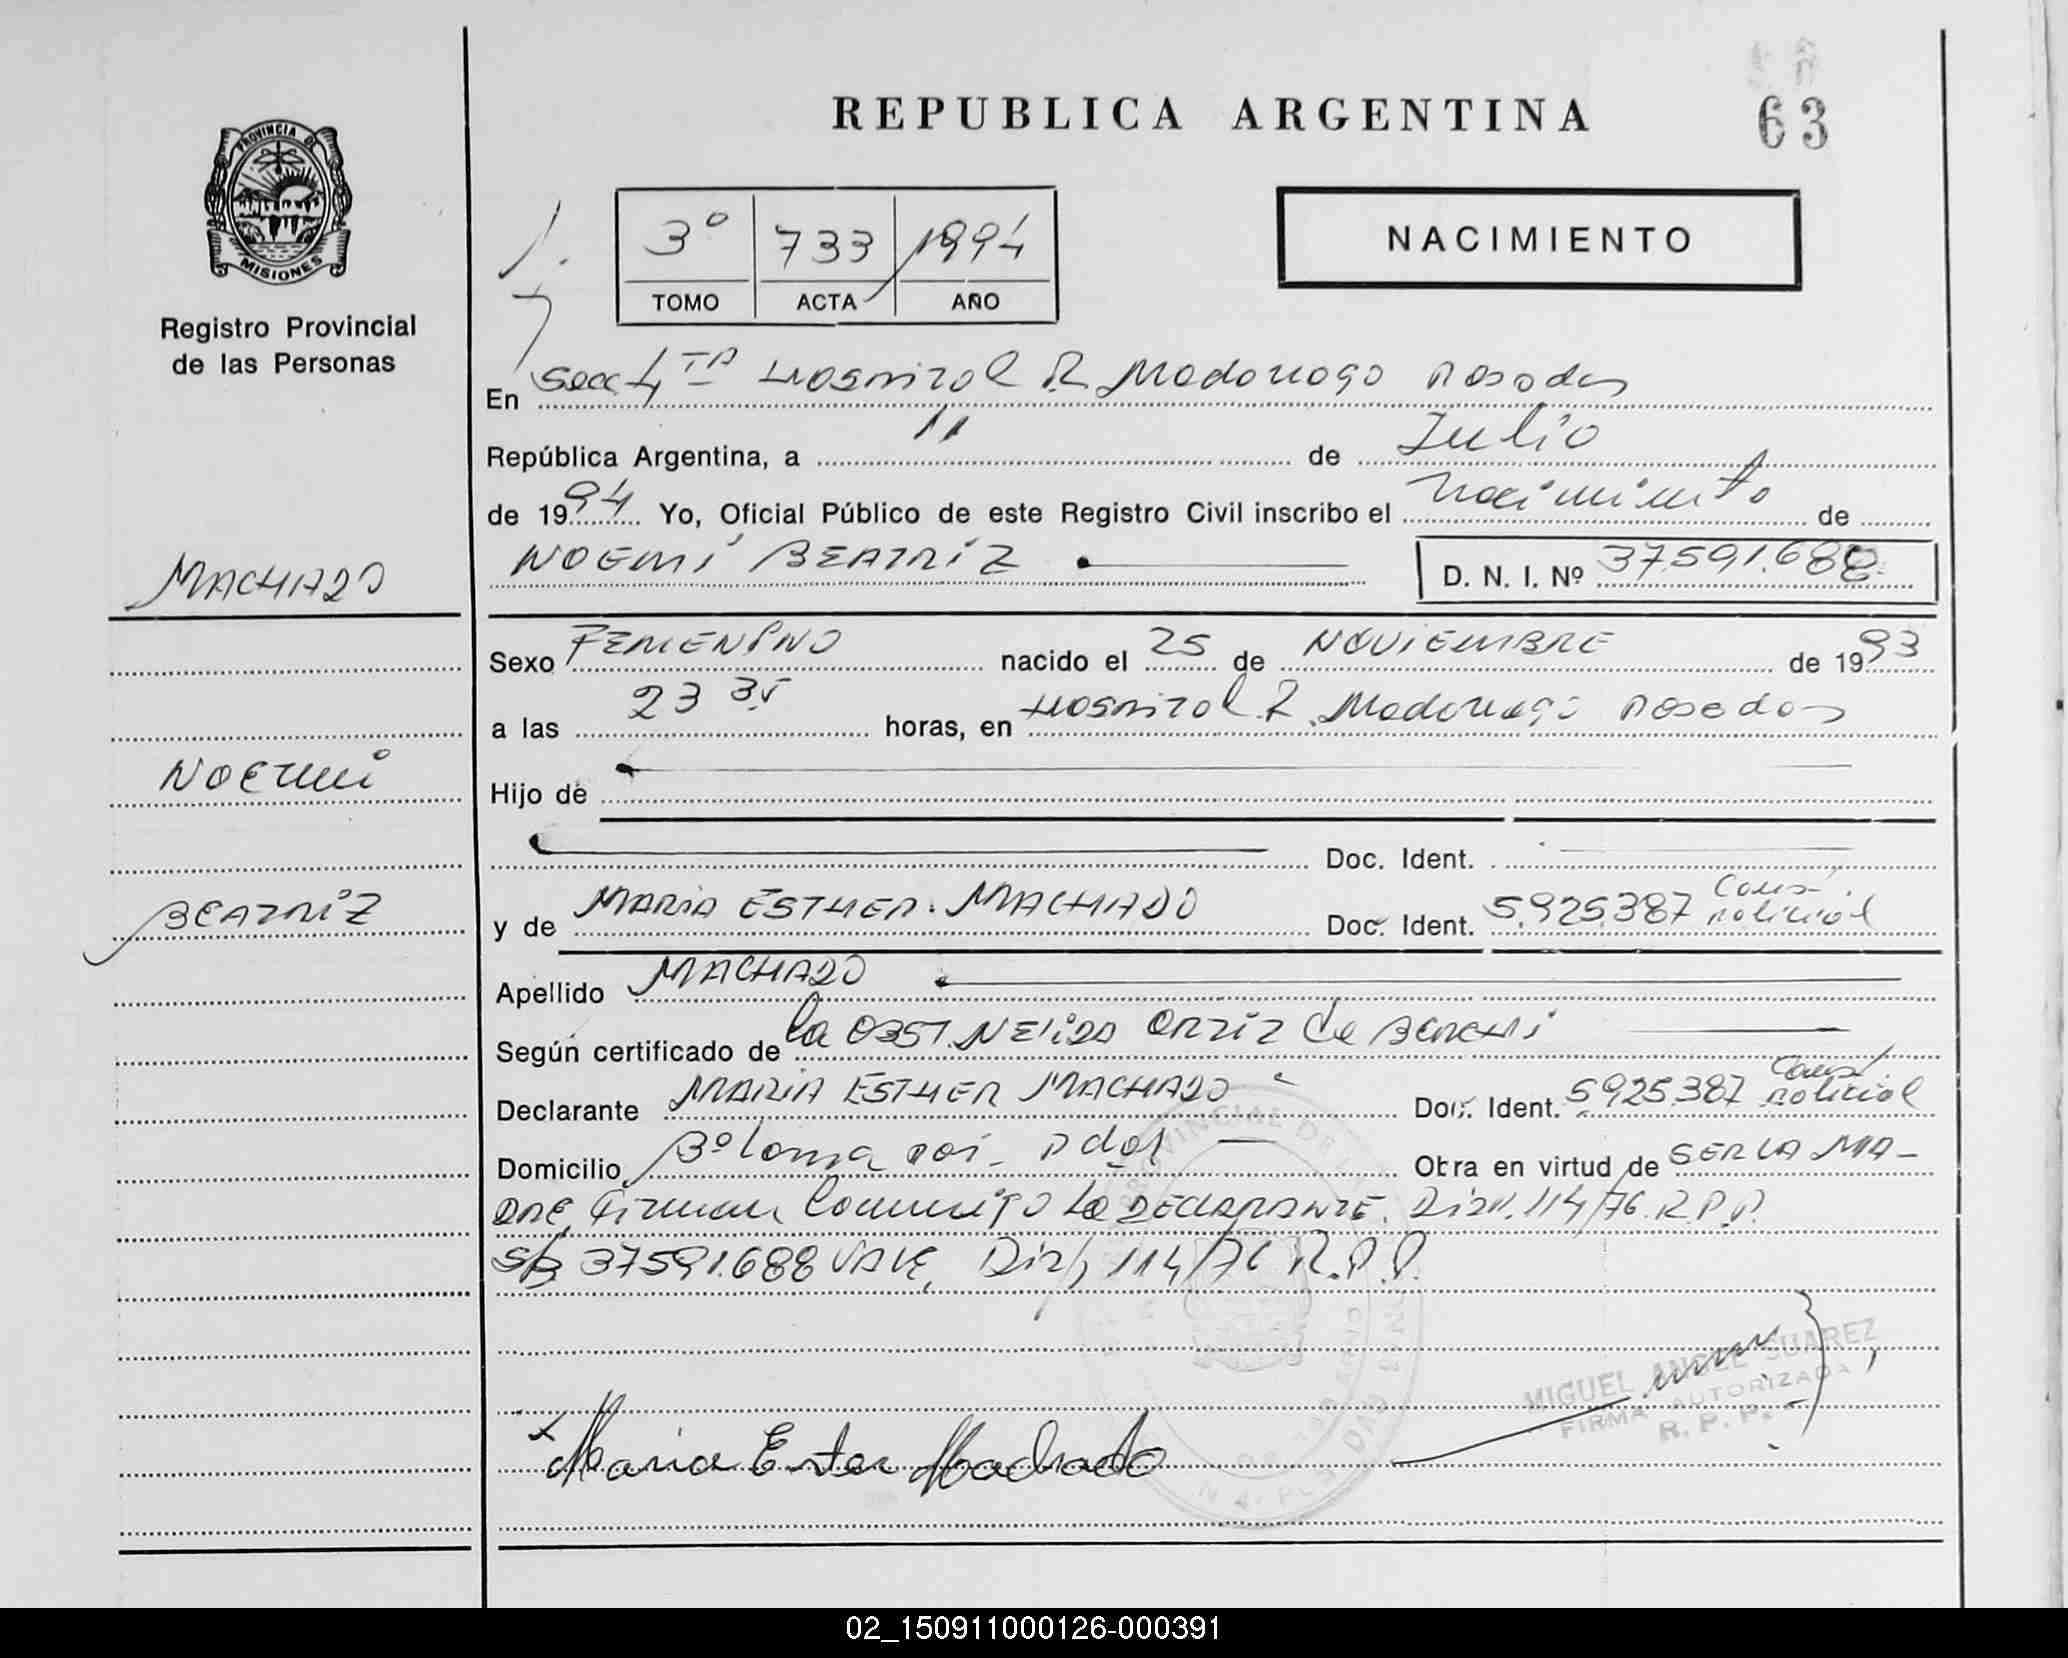 REPUBLICA ARGENTINA
63
PROVINCIA DE
MISIONES
Registro Provincial
de las Personas
3º 733 1994
TOMO ACTA AÑO
NACIMIENTO
En Secc 4TA Hospital R. Madariaga Posadas
República Argentina, a 11 de Julio
de 1994 Yo, Oficial Público de este Registro Civil inscribo el nacimiento de
NOEMÍ BEATRIZ D. N. I. Nº 37591.688
MACHADO
Sexo FEMENINO nacido el 25 de NOVIEMBRE de 1993
a las 23 35 horas, en Hospital R. Madariaga Posadas
NOEMI
Hijo de
Doc. Ident.
BEATRIZ
y de MARIA ESTHER MACHADO Doc. Ident. 5.925.387 Const. policial
Apellido MACHADO
Según certificado de la OBST. NELIDA ORTIZ de
Declarante MARIA ESTHER MACHADO Doc. Ident. 5925.387 Const. policial
Domicilio Bº Loma Pdas Obra en virtud de SER LA MA-
DRE. Firman Conmigo La DECLARANTE. Disp. 114/76 R.P.P.
S/B 37591.688 VALE, Disp, 114/76 R.P.P.
MIGUEL ANGEL SUAREZ
FIRMA AUTORIZADA
R. P. P.
x Maria Ester Machado
02_150911000126-000391